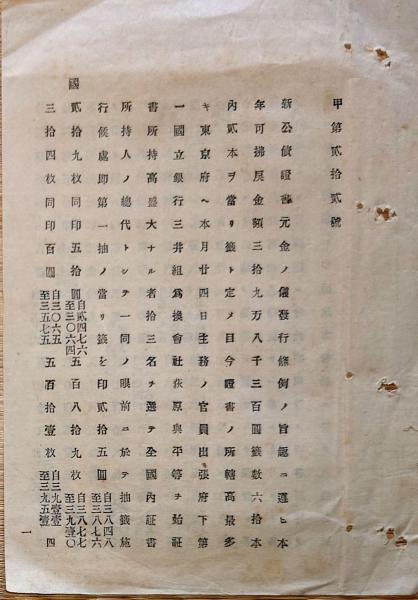 甲第貳拾貳號
新公債證書元金ノ儀發行條例ノ旨趣ニ遵ヒ本
年可拂戻金額三拾九万八千三百圓籤數六拾本
內貳本ヲ當リ籤ト定メ目今證書ノ所轄高最多
キ東京府ヘ本月廿四日主務ノ官員出張府下第
一國立銀行三井組爲換會社荻原與平等ヲ始証
書所持高盛大ナル者拾三名ヲ選テ全國內証書
所持人ノ總代トシテ一同ノ眼前ニ於テ抽籤施
行候處即第一抽ノ當リ籤を印貳拾五圓自三八四八至三八七六
國貳拾九枚同印五拾圓自貳四七六至三〇六四五百八拾九枚自三八七七至三九一〇
三拾四枚同印百圓自三〇六五至三五七五五百拾壹枚自三九壹壹至三九五壹四
一